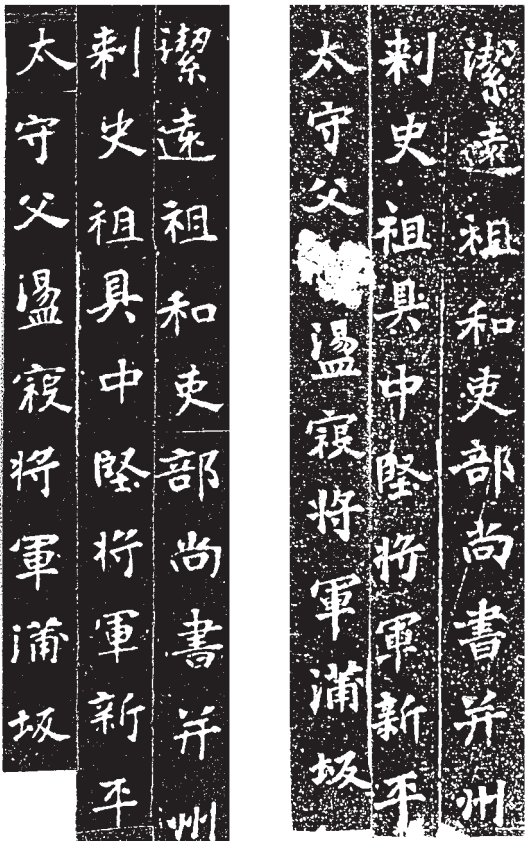 潔遠祖和吏部尚書并州
刺史祖具中堅將軍新平
太守父盪寇將軍蒲坂
潔遠祖和吏部尚書并州
刺史祖具中堅將軍新平
太守父盪寇將軍蒲坂